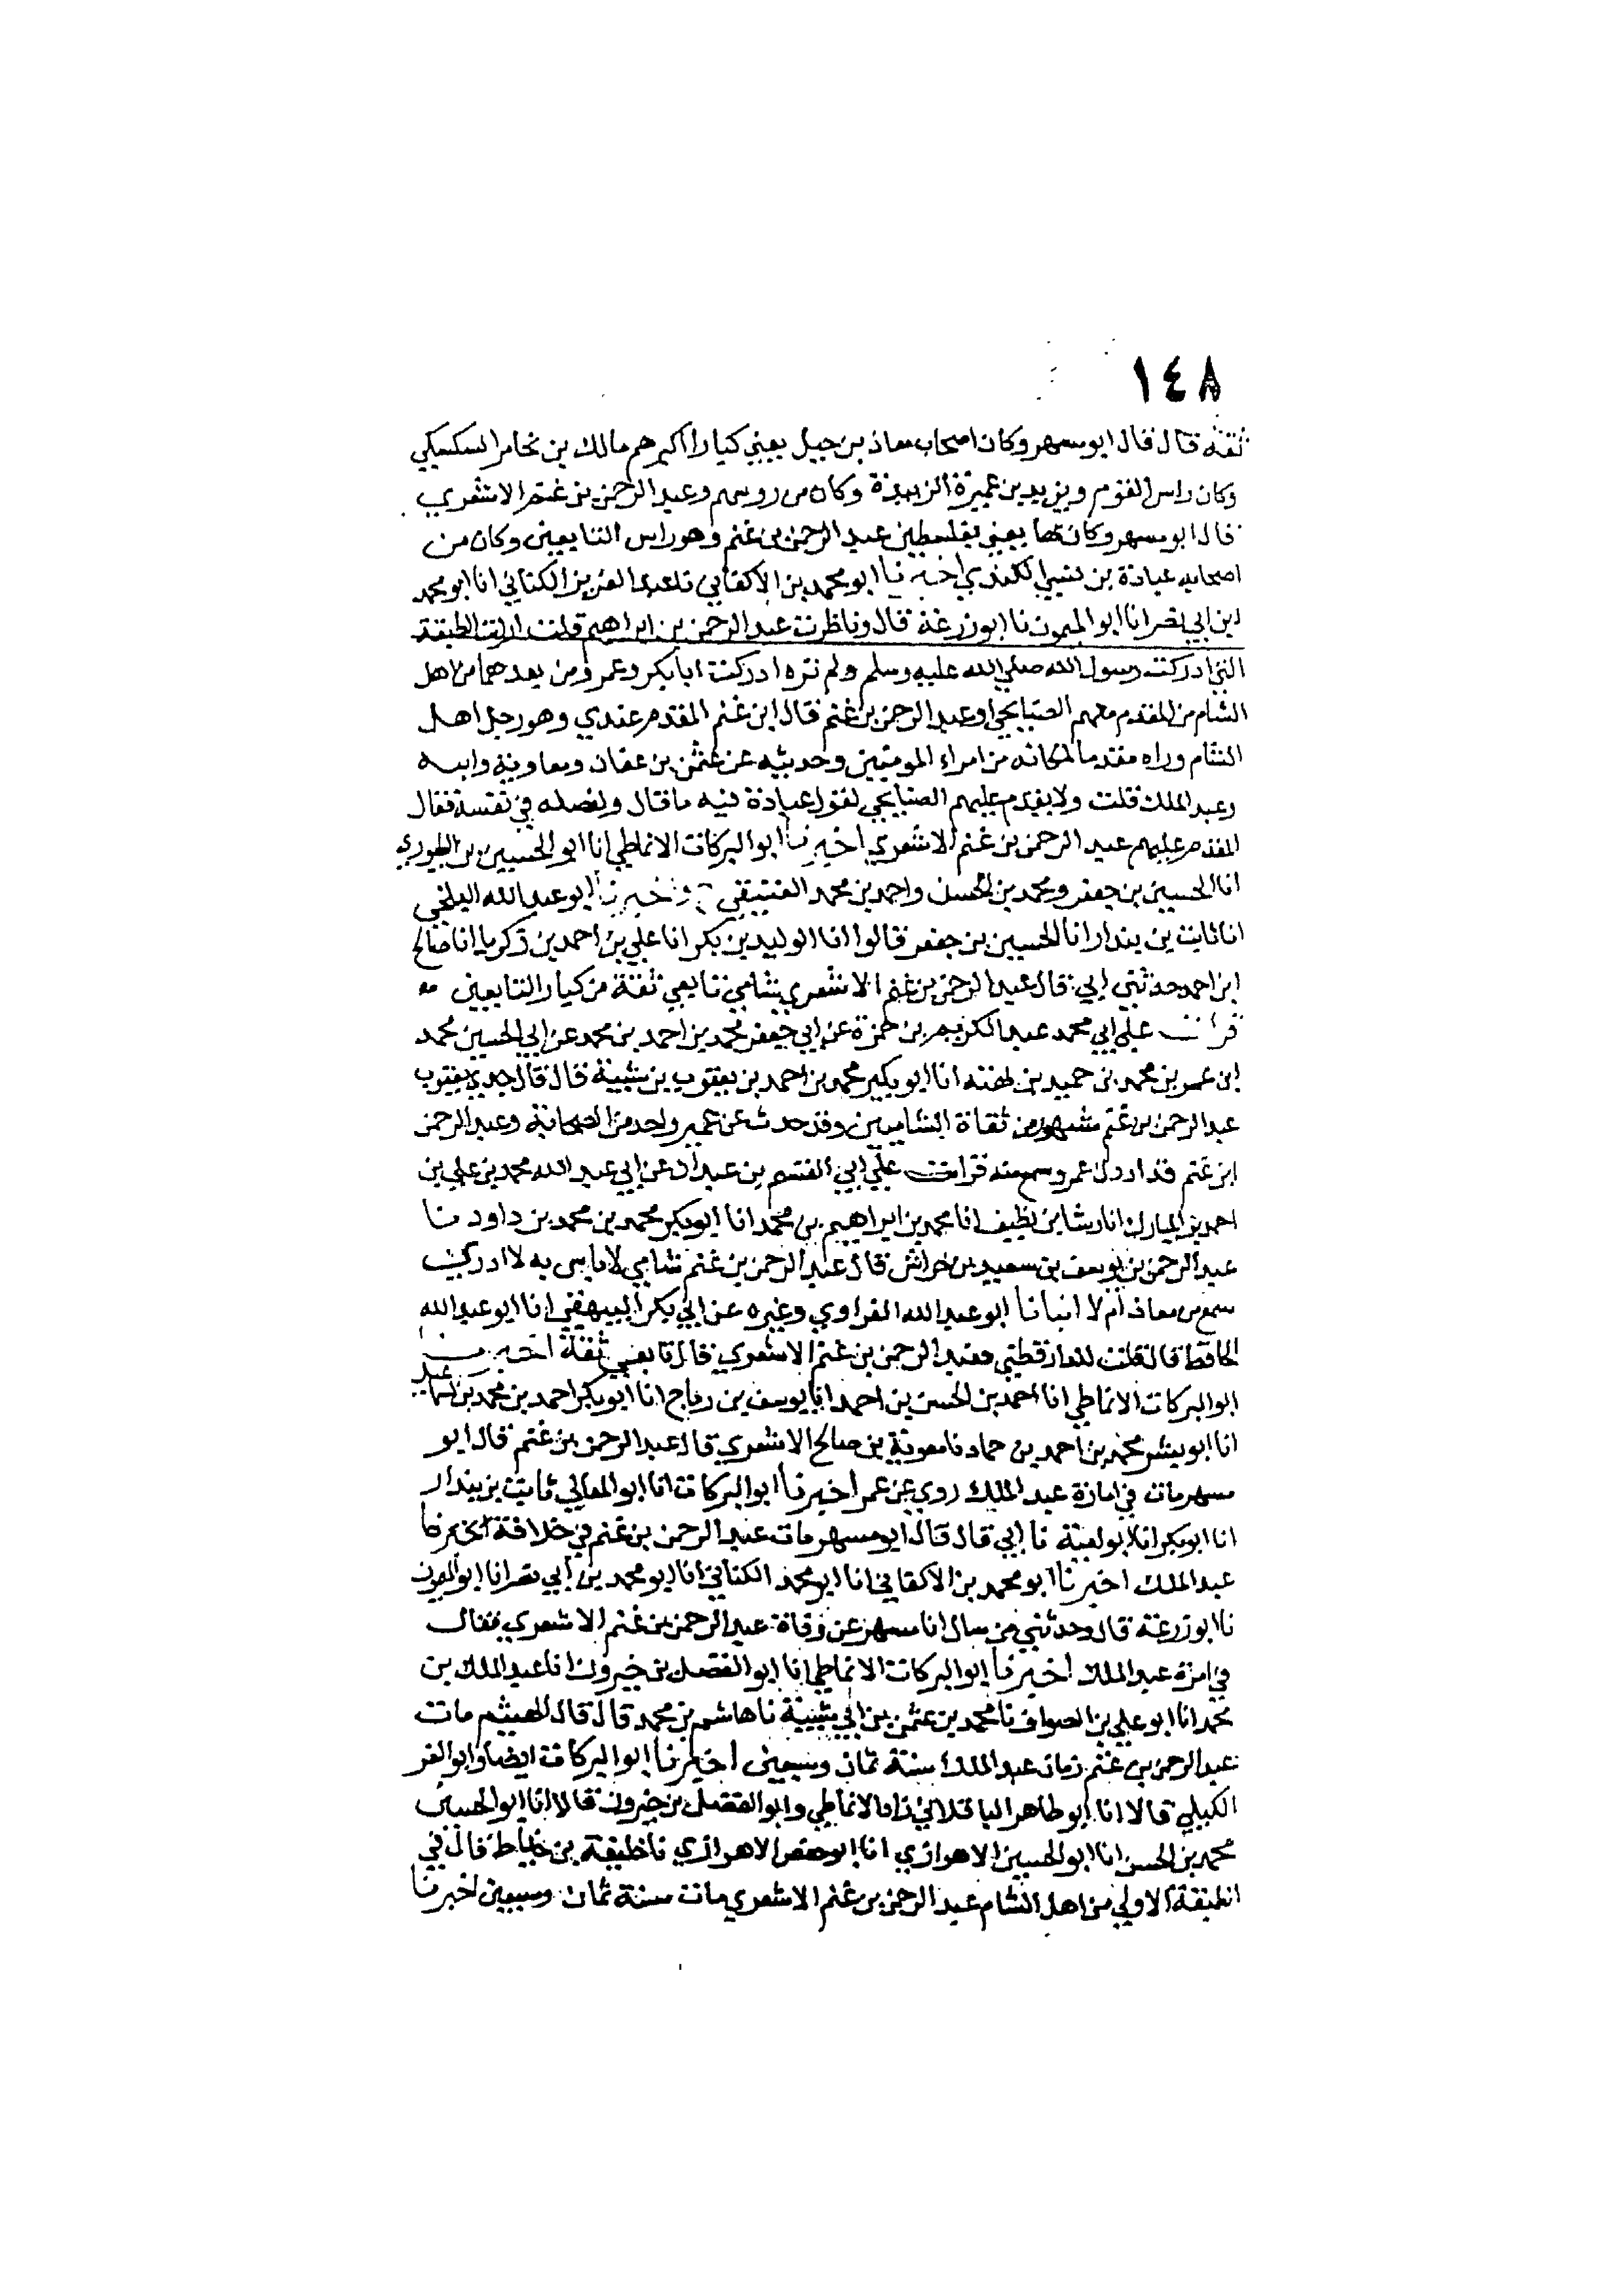 ١٤٨
ثقة قال قال ابو مسهر وكان اصحاب معاذ بن جبل يعني كبارا اكبرهم مالك بن يخامر السكسكي
وكان راس القوم ويزيد بن عميرة الزبيدة وكان من روسهم وعبد الرحمن بن غنم الاشعري
قال ابو مسهر وكان بها يعني بفلسطين عبد الرحمن بن غنم وهو راس التابعين وكان من
اصحابه عبادة بن نسي الكندي اخبرنا ابو محمد بن الاكفاني نا عبد العزيز الكتاني انا ابو محمد
ابن ابي نصر انا ابو الميمون نا ابو زرعة قال وناظرت عبد الرحمن بن ابراهيم قلت ارايت الطبقة
التي ادركت رسول الله صلي الله عليه وسلم ولم تره ادركت ابا بكر وعمر ومن بعدهما من اهل
الشام من المقدم منهم الصنابحي او عبد الرحمن بن غنم قال ابن غنم المقدم عندي وهو رجل اهل
الشام وراه مقدما لمكانه من امراء المومنين وحديثه عن عثمن بن عفان ومعاوية وابنه
وعبد الملك قلت ولا يقدم عليهم الصنابحي لقول عبادة فيه ما قال ولفضله في نفسه فقال
المقدم عليهم عبد الرحمن بن غنم الاشعري اخبرنا ابو البركات الانماطي انا ابو الحسين بن الطيوري
انا الحسين بن جعفر ومحمد بن الحسن واحمد بن محمد العتيقي ح واخبرنا ابو عبد الله البلخي
انا ثابت بن بندار انا الحسين بن جعفر قالوا انا الوليد بن بكر انا علي بن احمد بن زكريا انا صالح
ابن احمد حدثني ابي قال عبد الرحمن بن غنم الاشعري شامي تابعي ثقة من كبار التابعين
قرات علي ابي محمد عبد الكريم بن حمزة عن ابي جعفر محمد بن احمد بن محمد عن ابي الحسين محمد
ابن عمر بن محمد بن حميد بن بهته انا ابو بكر محمد بن احمد بن يعقوب بن شيبة قال قال جدي يعقوب
عبد الرحمن بن غنم مشهور من ثقاة الشاميين وقد حدث عن غير واحد من الصحابة وعبد الرحمن
ابن غنم قد ادرك عمر وسمع منه قرات علي ابي القسم بن عبدان عن ابي عبد الله محمد بن علي بن
احمد بن المبارك انا رشا بن نظيف انا محمد بن ابراهيم بن محمد انا ابو بكر محمد بن محمد بن داود نا
عبد الرحمن بن يوسف بن سعيد بن خراش قال عبد الرحمن بن غنم شامي لا باس به لا ادركت
سمع من معاذ ام لا انبانا ابو عبد الله الفراوي وغيره عن ابي بكر البيهقي انا ابو عبد الله
الحافظ قال قلت للدارقطني فعبد الرحمن بن غنم الاشعري قال تابعي ثقة اخبرنا
ابو البركات الانماطي انا احمد بن الحسن بن احمد انا يوسف بن رباح انا ابو بكر احمد بن محمد بن اسماعيل
انا ابو بشر محمد بن احمد بن حماد نا معوية بن صالح الاشعري قال عبد الرحمن بن غنم قال ابو
مسهر مات في امارة عبد الملك روي عن عمر اخبرنا ابو البركات انا ابو المعالي ثابت بن بندار
انا ابو بكر انا ابو امية نا ابي قال قال ابو مسهر مات عبد الرحمن بن غنم في خلافة
عبد الملك اخبرنا ابو محمد بن الاكفاني انا ابو محمد الكتاني انا ابو محمد بن ابي نصر انا ابو الميمون
نا ابو زرعة قال وحدثني من سال ابا مسهر عن وفاة عبد الرحمن بن غنم الاشعري فقال
في امرة عبد الملك اخبرنا ابو البركات الانماطي انا ابو الفضل بن خيرون انا عبد الملك بن
محمد انا ابو علي بن الصواف نا محمد بن عثمن بن ابي شيبة نا هاشم بن محمد قال قال الهيثم مات
عبد الرحمن بن غنم زمان عبد الملك سنة ثمان وسبعين اخبرنا ابو البركات ايضا وابو العز
الكيلي قالا انا ابو طاهر الباقلاني زاد الانماطي وابو الفضل بن خيرون قالا انا ابو الحسين
محمد بن الحسن انا ابو الحسين الاهوازي انا ابو حفص الاهوازي نا خليفة بن خياط قال في
الطبقة الاولي من اهل الشام عبد الرحمن بن غنم الاشعري مات سنة ثمان وسبعين اخبرنا